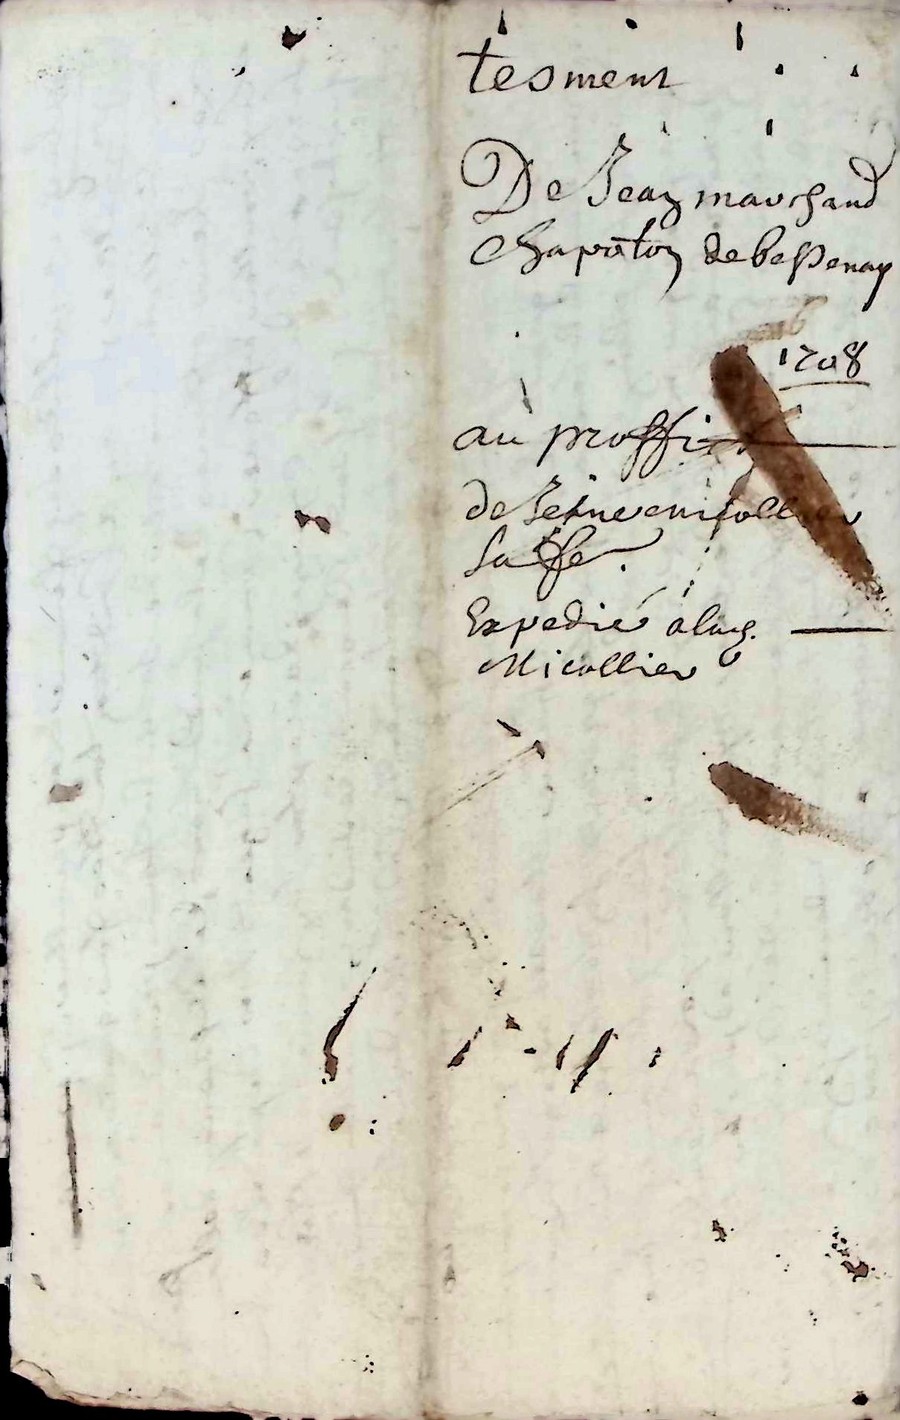 tesment
De Jean marchand
Chapoton de bessenay
1708
au proffit
de Jeanne micollier
sa fe.
Expedié a lad.
Micollier